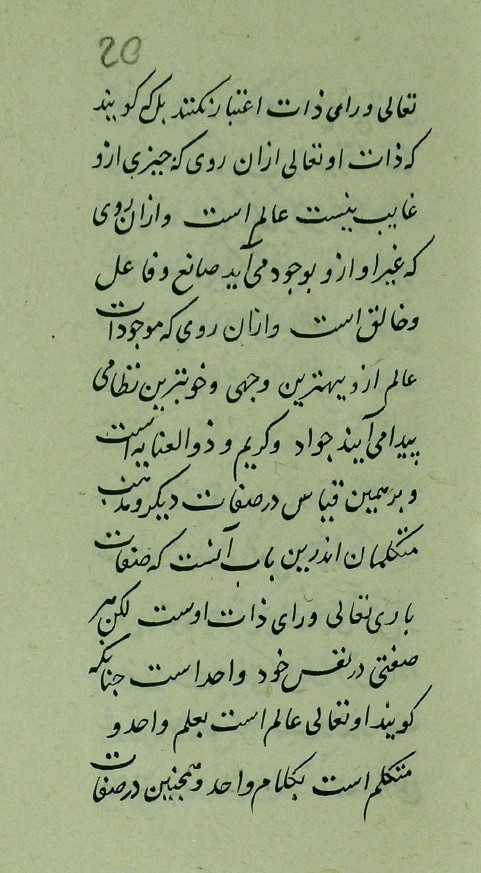 20
تعالی ورای ذات اعتبار نکنند بل که کویند
که ذات او تعالی ازان روی که چیزی ازو
غایب نیست عالم است وازان روی
که غیر او ازو بوجود می آید صانع و فاعل
وخالق است وازان روی که موجودات
عالم ازو ببهترین وجهی وخوبترین نظامی
پیدا می آیند جواد وکریم و ذوالعنایه است
و برهمین قیاس در صفات دیکر ومذهب
متکلمان اندرین باب آنست که صفات
باری تعالی ورای ذات اوست لکن هر
صفتی در نفس خود واحد است چنانکه
کویند او تعالی عالم است بعلم واحد و
متکلم است بکلام واحد وهمچنین در صفات